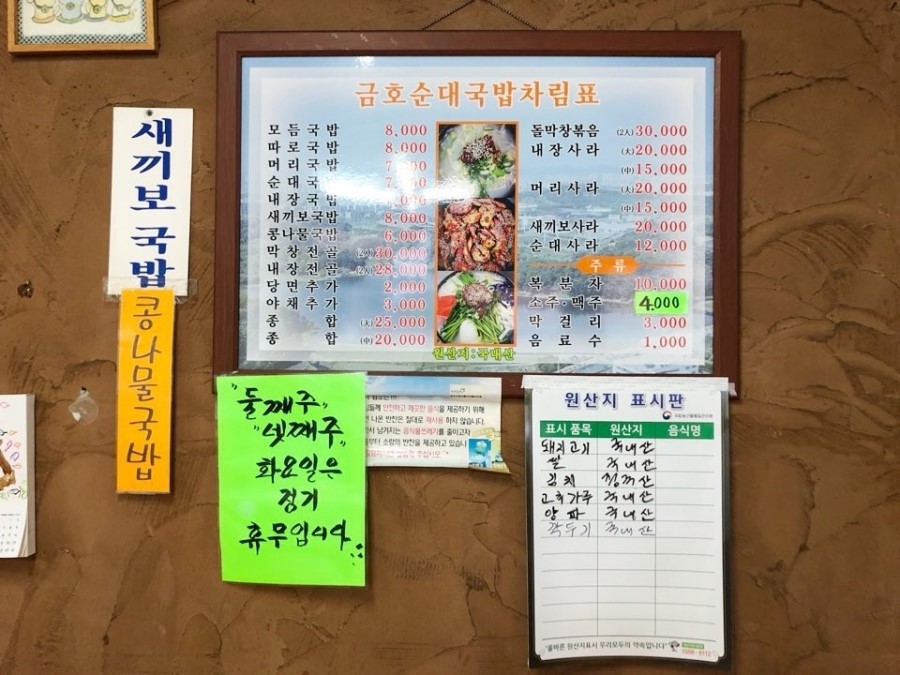 새끼보국밥
콩나물국밥
금호순대국밥차림표
모듬국밥 8,000
따로국밥 8,000
머리국밥
순대국밥
내장국밥
새끼보국밥 8,000
콩나물국밥 6,000
막창전골 (2人)30,000
내장전골 (2人)28,000
당면추가 2,000
야채추가 3,000
종합 (大)25,000
종합 (中)20,000
원산지:국내산
돌막창볶음 (2人)30,000
내장사라 (大)20,000
(中)15,000
머리사라 (大)20,000
(中)15,000
새끼보사라 20,000
순대사라 12,000
주류
복분자 10,000
소주·맥주 4.000
막걸리 3,000
음료수 1,000
"둘째주,
"넷째주"
화요일은
정기
휴무입니다.
안전하고 깨끗한 음식을 제공하기 위해
나온 반찬은 절대로 재사용 하지 않습니다.
남겨지는 음식물쓰레기를 줄이고자
소량의 반찬을 제공하고 있습니
원산지 표시판
표시 품목 원산지 음식명
돼지고기 국내산
쌀 국내산
김치 국내산
고추가루 국내산
양파 국내산
깍두기 국내산
"올바른 원산지표시 우리모두의 약속입니다"